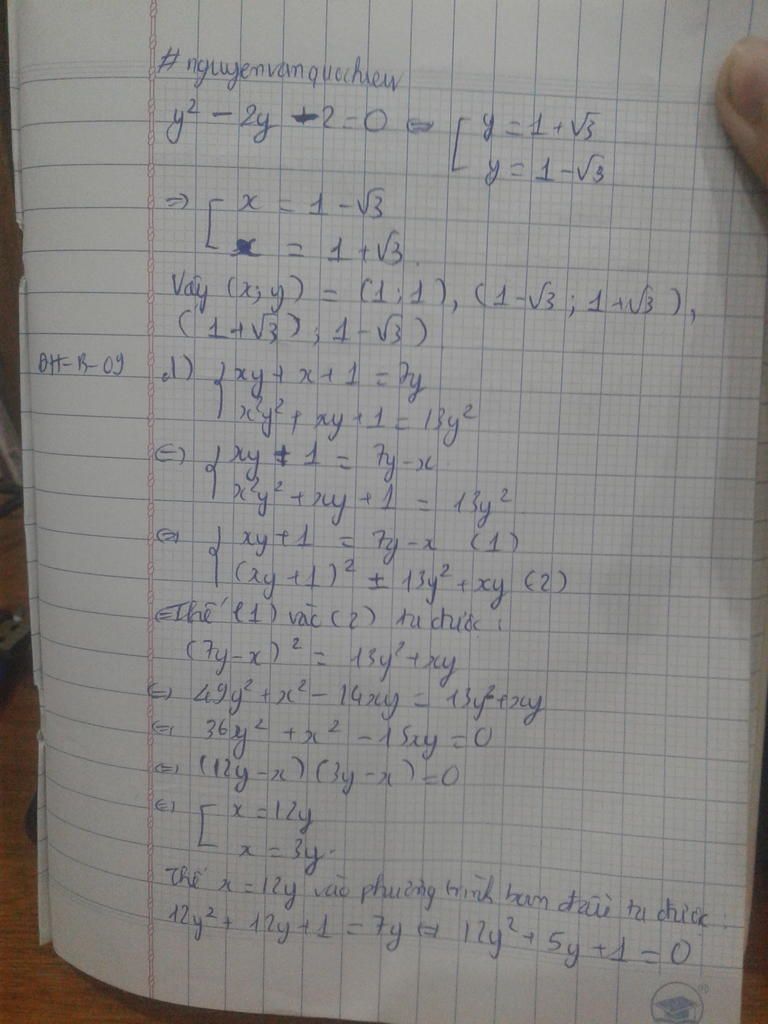 #nguyenvanquochieu
y² - 2y - 2 = 0 ⇔ [ y = 1 + √3
y = 1 - √3
⇒ [ x = 1 - √3
x = 1 + √3.
Vậy (x; y) = (1; 1), (1 - √3; 1 + √3),
(1 + √3); 1 - √3)
ĐH-B-09 1) { xy + x + 1 = 7y
x²y² + xy + 1 = 13y²
⇔ { xy + 1 = 7y - x
x²y² + xy + 1 = 13y²
⇔ { xy + 1 = 7y - x (1)
(xy + 1)² = 13y² + xy (2)
Thế (1) vào (2) ta được:
(7y - x)² = 13y² + xy
⇔ 49y² + x² - 14xy = 13y² + xy
⇔ 36y² + x² - 15xy = 0
⇔ (12y - x)(3y - x) = 0
⇔ [ x = 12y
x = 3y.
Thế x = 12y vào phương trình ban đầu ta được:
12y² + 12y + 1 = 7y ⇔ 12y² + 5y + 1 = 0